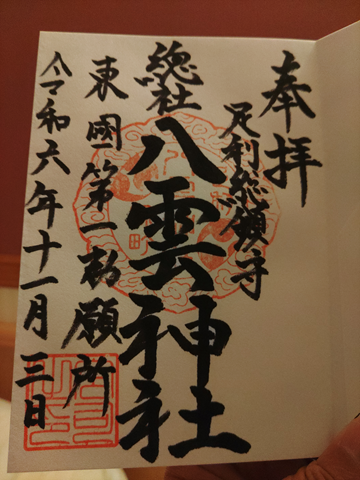 奉拝
足利總鎮守
總社
八雲神社
東國第一勅願所
令和六年十一月三日